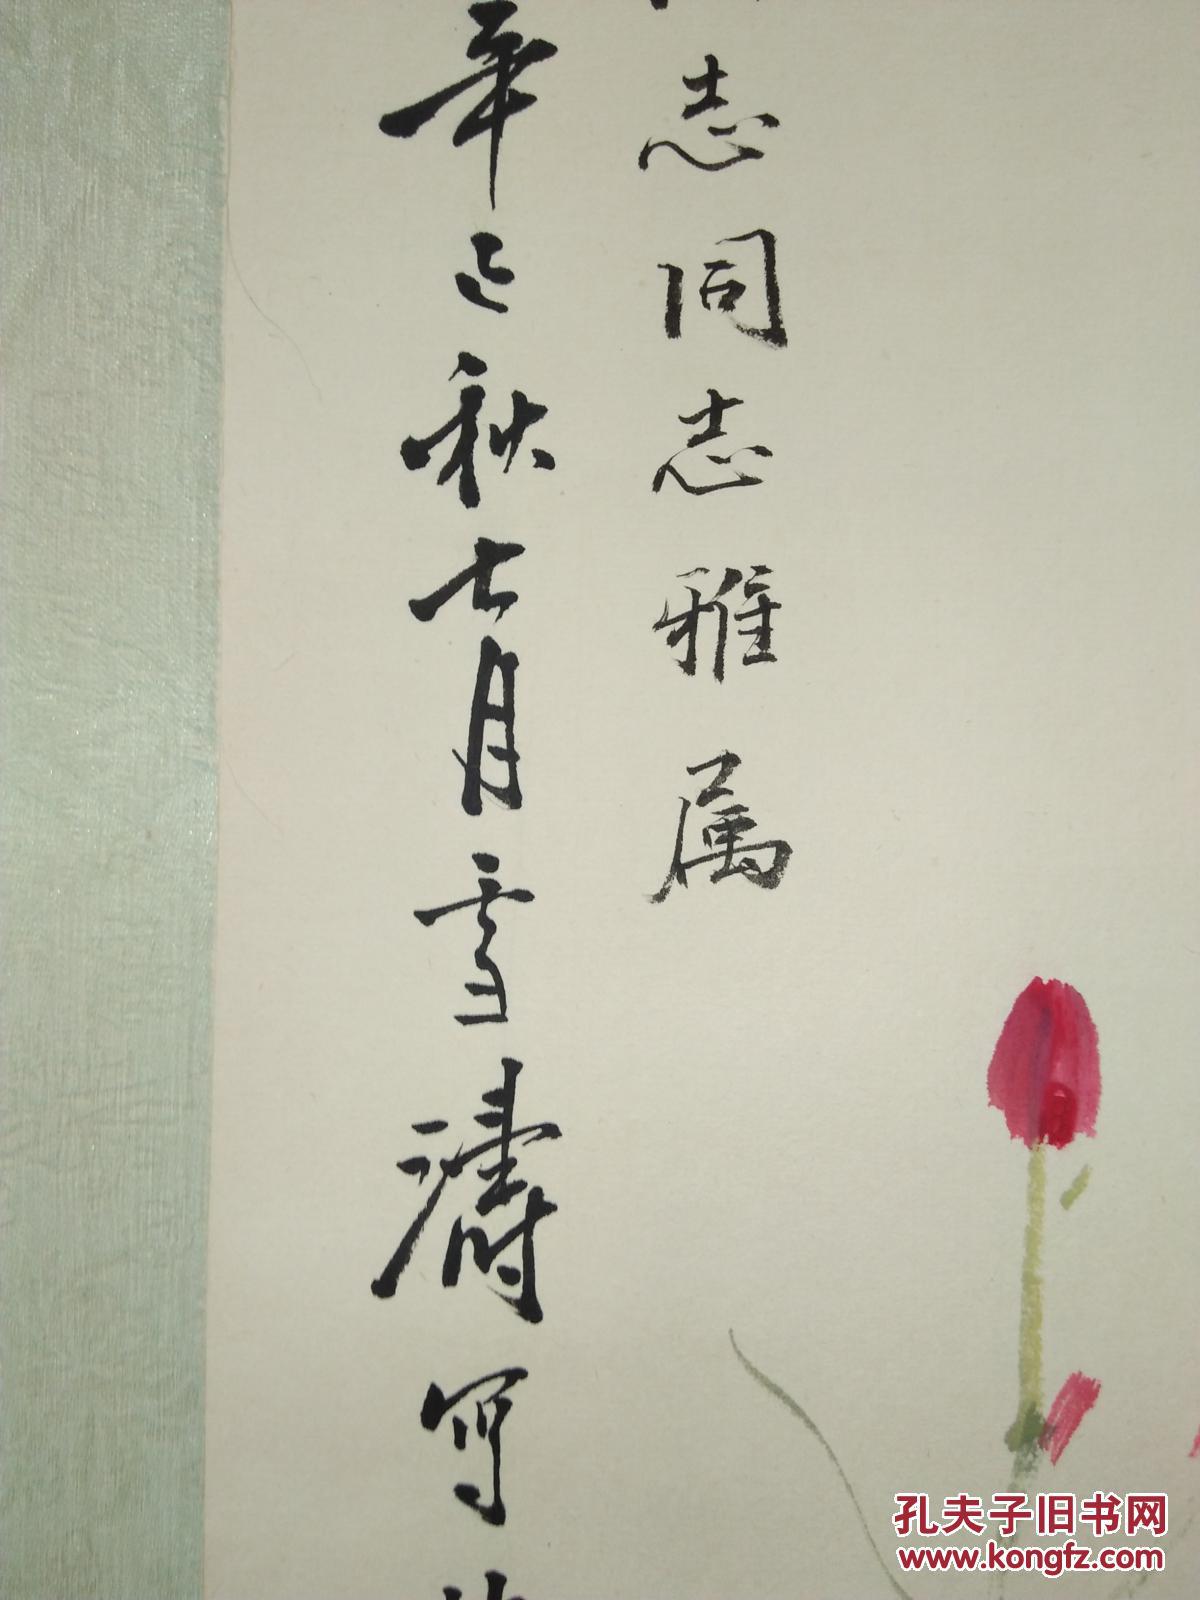 志同志雅属
辛已秋七月雪濤写
孔夫子旧书网
www.kongfz.com